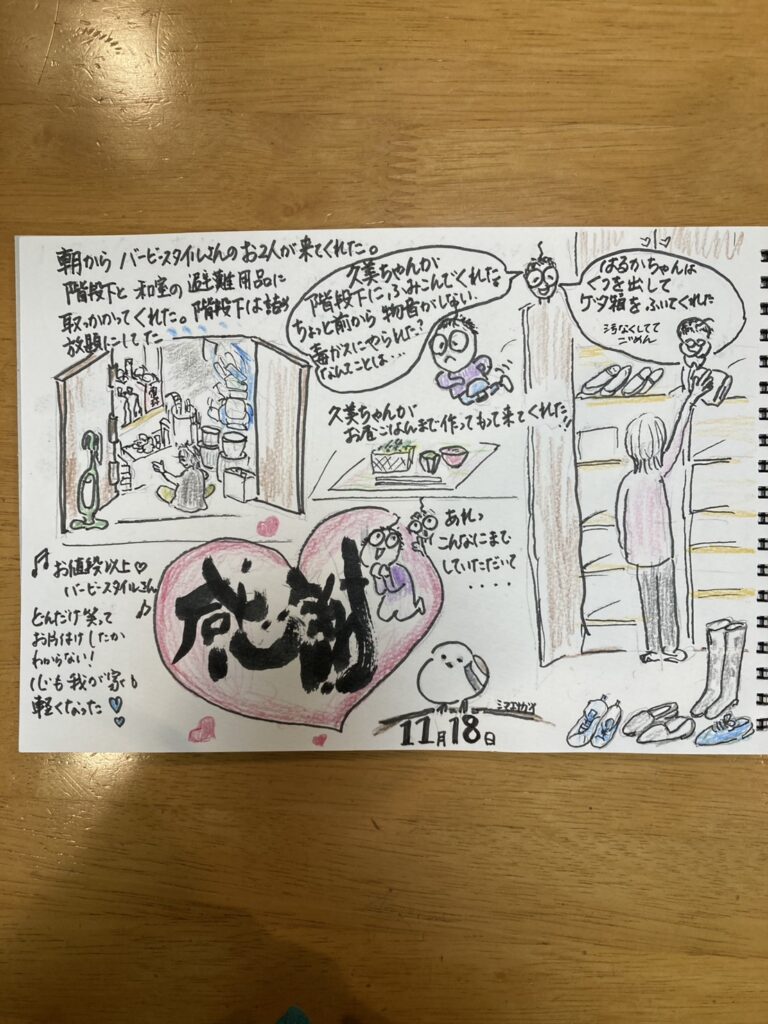 朝から バービースタイルさんのお2人が来てくれた。
階段下と 和室の 避難用品に
取っかかってくれた。階段下は詰め
放題にしてた
久美ちゃんが
階段下に、ふみこんでくれた。
ちょっと前から 物音がしない。
毒ガスにやられた?
なんてことは・・・
はるかちゃんは
くつを出して
ゲタ箱をふいてくれた
汚なくしてて
ごめん
久美ちゃんが
お昼ごはんまで作ってもって来てくれた!!
あれっ
こんなにまで
していただいて
・・・・
感謝
♪お値段以上♡
バービースタイルさん♪
どんだけ笑って
お片付けしたか
わからない!
心も我が家も
軽くなった
シマエナガ
11月18日